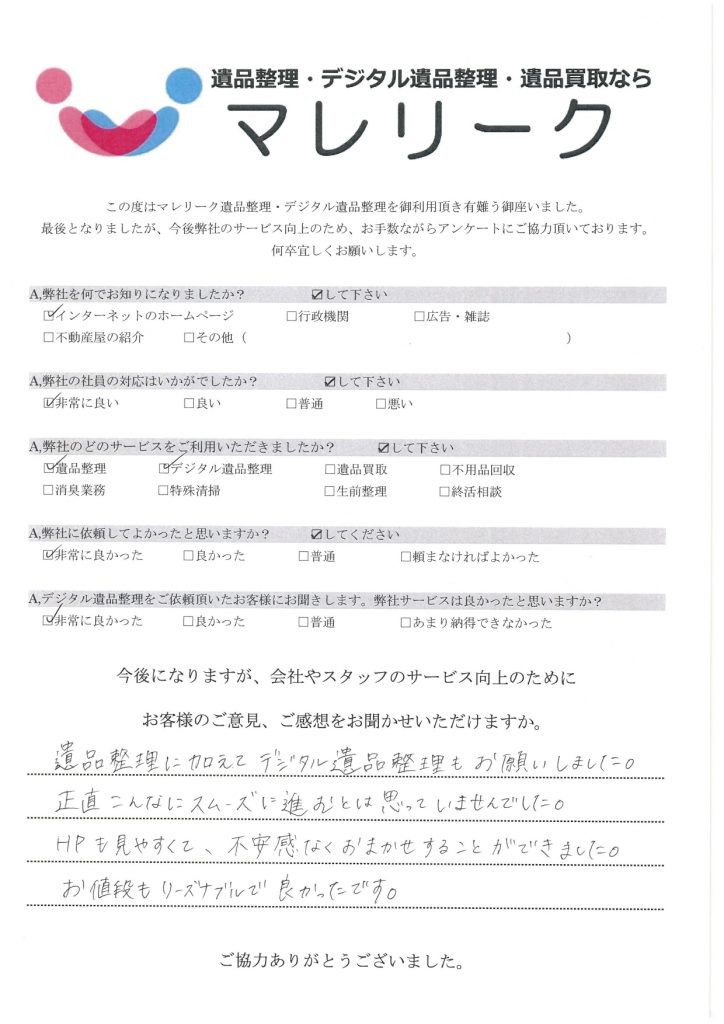 遺品整理・デジタル遺品整理・遺品買取なら
マレリーク
この度はマレリーク遺品整理・デジタル遺品整理を御利用頂き有難う御座いました。
最後となりましたが、今後弊社のサービス向上のため、お手数ながらアンケートにご協力頂いております。
何卒宜しくお願いします。
A,弊社を何でお知りになりましたか？ ☑して下さい
☑インターネットのホームページ □行政機関 □広告・雑誌
□不動産屋の紹介 □その他（ ）
A,弊社の社員の対応はいかがでしたか？ ☑して下さい
☑非常に良い □良い □普通 □悪い
A,弊社のどのサービスをご利用いただきましたか？ ☑して下さい
☑遺品整理 ☑デジタル遺品整理 □遺品買取 □不用品回収
□消臭業務 □特殊清掃 □生前整理 □終活相談
A,弊社に依頼してよかったと思いますか？ ☑してください
☑非常に良かった □良かった □普通 □頼まなければよかった
A,デジタル遺品整理をご依頼頂いたお客様にお聞きします。弊社サービスは良かったと思いますか？
☑非常に良かった □良かった □普通 □あまり納得できなかった
今後になりますが、会社やスタッフのサービス向上のために
お客様のご意見、ご感想をお聞かせいただけますか。
遺品整理に加えてデジタル遺品整理もお願いしました。
正直こんなにスムーズに進むとは思っていませんでした。
HPも見やすくて、不安感なくおまかせすることができました。
お値段もリーズナブルで良かったです。
ご協力ありがとうございました。